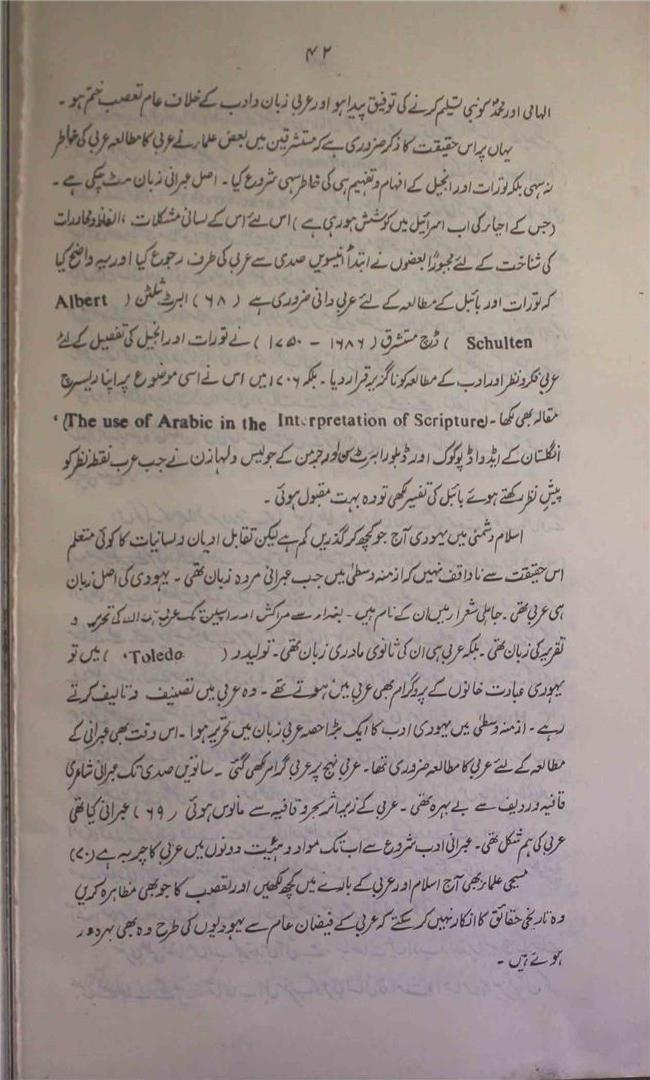 ۴۲
الہامی اور محمدؐ کو نبی تسلیم کرنے کی توفیق پیدا ہو اور عربی زبان و ادب کے خلاف عام تعصب ختم ہو ۔
یہاں پر اس حقیقت کا ذکر ضروری ہے کہ مستشرقین میں بعض علماء نے عربی کا مطالعہ عربی کی خاطر
نہ سہی بلکہ تورات اور انجیل کے افہام و تفہیم ہی کی خاطر سہی شروع کیا ۔ اصل عبرانی زبان مٹ چکی ہے ۔
(جس کے احیاء کی اب اسرائیل میں کوشش ہو رہی ہے ) اس لئے اس کے لسانی مشکلات ، الفاظ و محاورات
کی شناخت کے لئے مجبوراً بعضوں نے ابتداً انیسویں صدی سے عربی کی طرف رجوع کیا اور یہ واضح کیا
کہ تورات اور بائبل کے مطالعہ کے لئے عربی دانی ضروری ہے ( ۶۸ ) البرٹ شلٹن ( Albert
Schulten ) ڈچ مستشرق ( ۱۶۸۶ - ۱۷۵۰ ) نے تورات اور انجیل کی تفصیل کے لئے
عربی فکر و نظر اور ادب کے مطالعہ کو ناگزیر قرار دیا ۔ بلکہ ۱۷۰۶ میں اس نے اسی موضوع پر اپنا ریسرچ
مقالہ بھی لکھا ۔ (The use of Arabic in the Interpretation of Scripture) ،
انگلستان کے ایڈورڈ پوکوک اور ڈبلو رابرٹ سن اور جرمن کے جولیس ولہازن نے جب عرب نقطۂ نظر کو
پیش نظر رکھتے ہوئے بائبل کی تفسیر لکھی تو وہ بہت مقبول ہوئی ۔
اسلام دشمنی میں یہودی آج جو کچھ کر گذریں کم ہے لیکن تقابل ادیان و لسانیات کا کوئی متعلم
اس حقیقت سے ناواقف نہیں کہ ازمنہ وسطیٰ میں جب عبرانی مردہ زبان تھی ۔ یہودی کی اصل زبان
ہی عربی تھی ۔ جاہلی شعراء میں ان کے نام ہیں ۔ بغداد سے مراکش اور اسپین تک عربی ہی ان کی تحریر و
تقریر کی زبان تھی ۔ بلکہ عربی ہی ان کی ثانوی مادری زبان تھی ۔ تولیدو ( Toledo ) میں تو
یہودی عبادت خانوں کے پروگرام بھی عربی میں ہوتے تھے ۔ وہ عربی میں تصنیف و تالیف کرتے
رہے ۔ ازمنہ وسطیٰ میں یہودی ادب کا ایک بڑا حصہ عربی زبان میں تحریر ہوا ۔ اس وقت بھی عبرانی کے
مطالعہ کے لئے عربی کا مطالعہ ضروری تھا ۔ عربی نہج پر عربی گرامر لکھی گئی ۔ ساتویں صدی تک عبرانی شاعری
قافیہ و ردیف سے بے بہرہ تھی ۔ عربی کے زیر اثر بحر و قافیہ سے مانوس ہوئی ( ۶۹ ) عبرانی کیا تھی
عربی کی ہم شکل تھی ۔ عبرانی ادب شروع سے اب تک مواد و ہیئت دونوں میں عربی کا چربہ ہے (۷۰)
مسیحی علماء بھی آج اسلام اور عربی کے بارے میں کچھ لکھیں اور تعصب کا جو بھی مظاہرہ کریں
وہ تاریخی حقائق کا انکار نہیں کر سکتے کہ عربی کے فیضان عام سے یہودیوں کی طرح وہ بھی بہرہ ور
ہوئے ہیں ۔